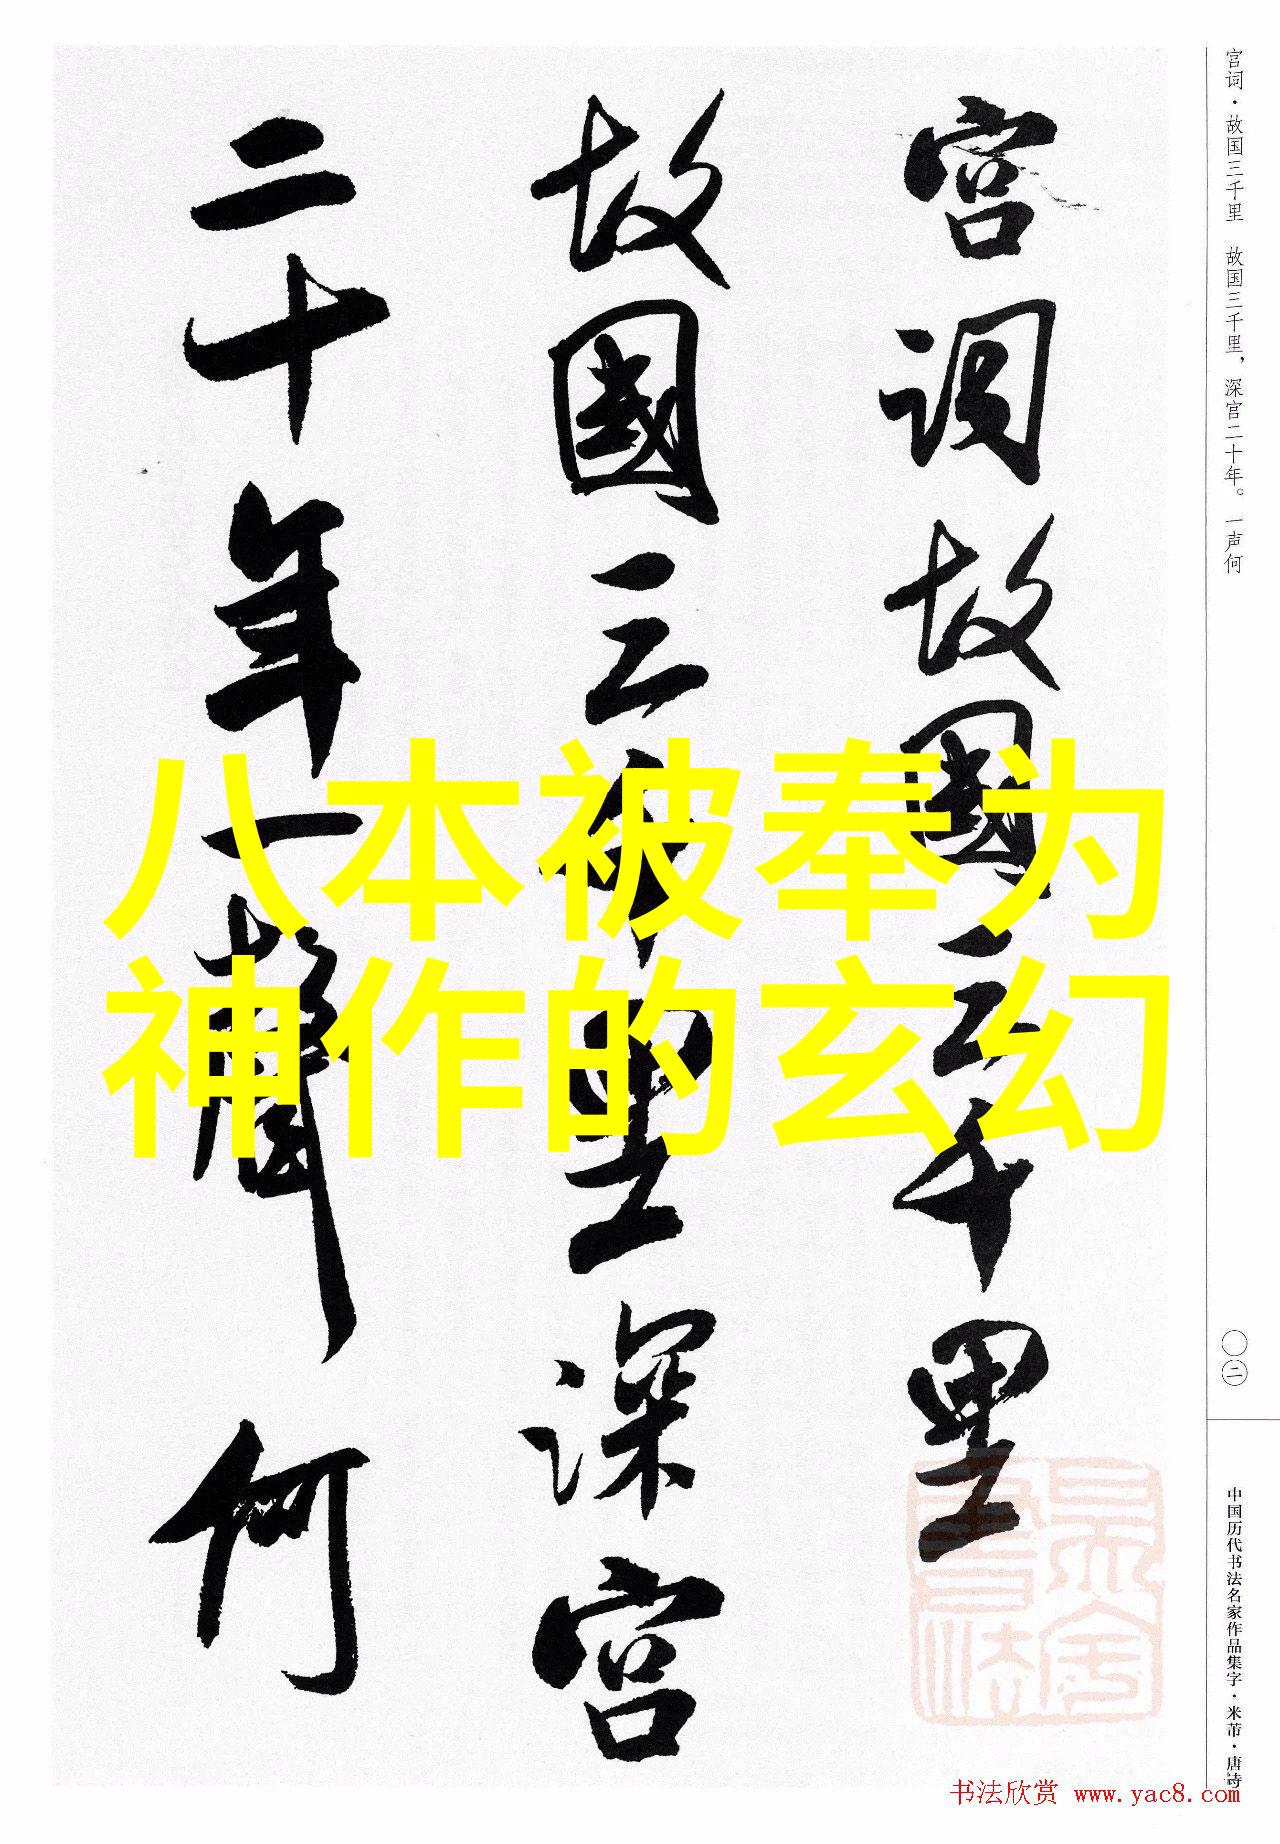 宫词·故国三千里 故国三千里，深宫二十年。一声何
宫词故國三千里
故國三千里深宫
二十年一聲何
八本被奉为
神作的玄幻
〇二
中国历代书法名家作品集字·米芾·唐诗
书法欣赏 www.yac8.com